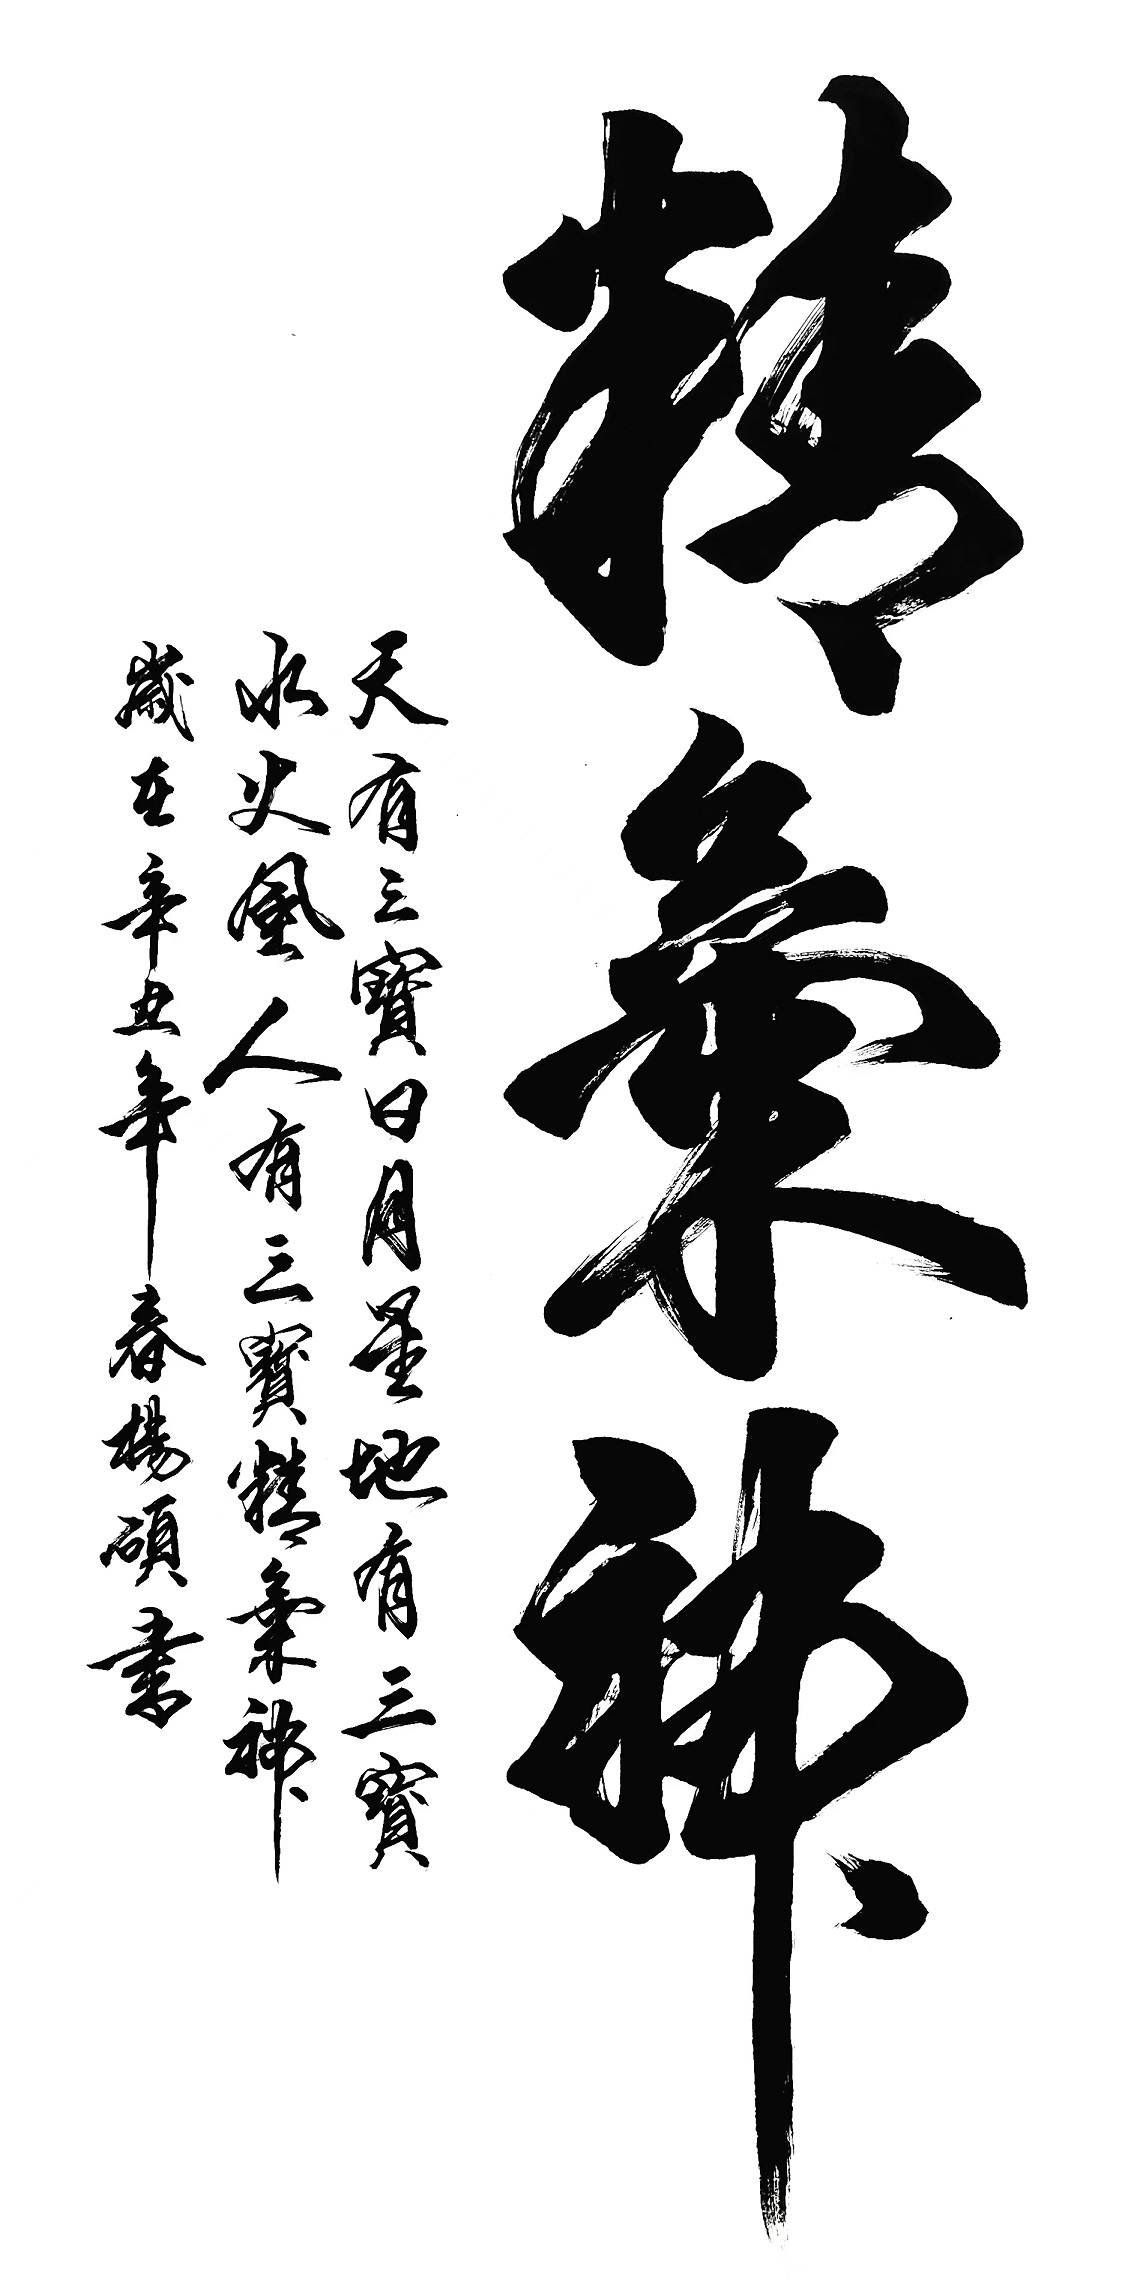 精氣神
天有三寶日月星地有三寶
水火風人有三寶精氣神
歲在辛丑年春楊碩書